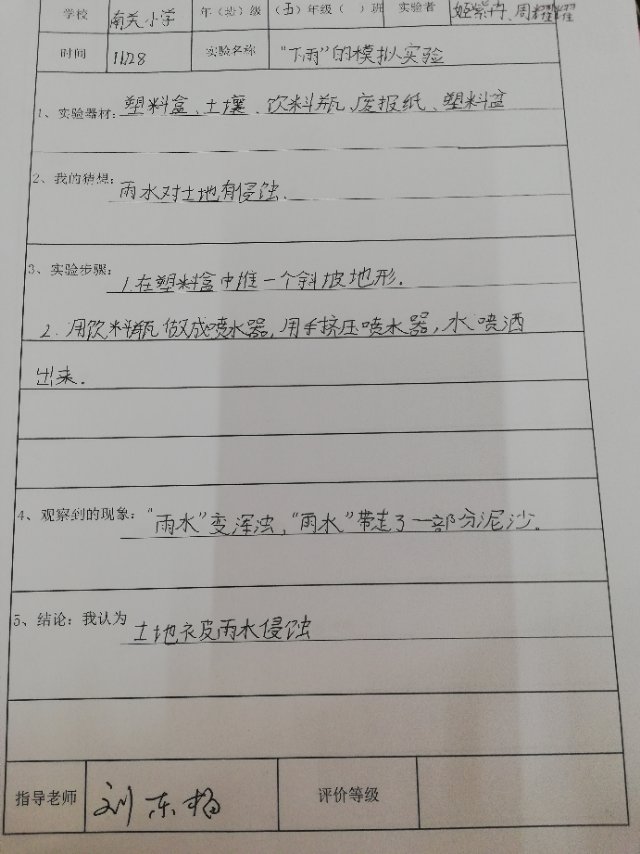 学校 南关小学 年(班)级 (五)年级( )班 实验者 姬紫冉、周耀耀
时间 11/28 实验名称 “下雨”的模拟实验
1、实验器材: 塑料盒、土壤、饮料瓶、废报纸、塑料盆
2、我的猜想: 雨水对土地有侵蚀.
3、实验步骤: 1.在塑料盒中堆一个斜坡地形.
2.用饮料瓶做成喷水器,用手挤压喷水器,水喷洒
出来.
4、观察到的现象: “雨水”变浑浊,“雨水”带走了一部分泥沙.
5、结论:我认为 土地被雨水侵蚀
指导老师 刘东梅 评价等级